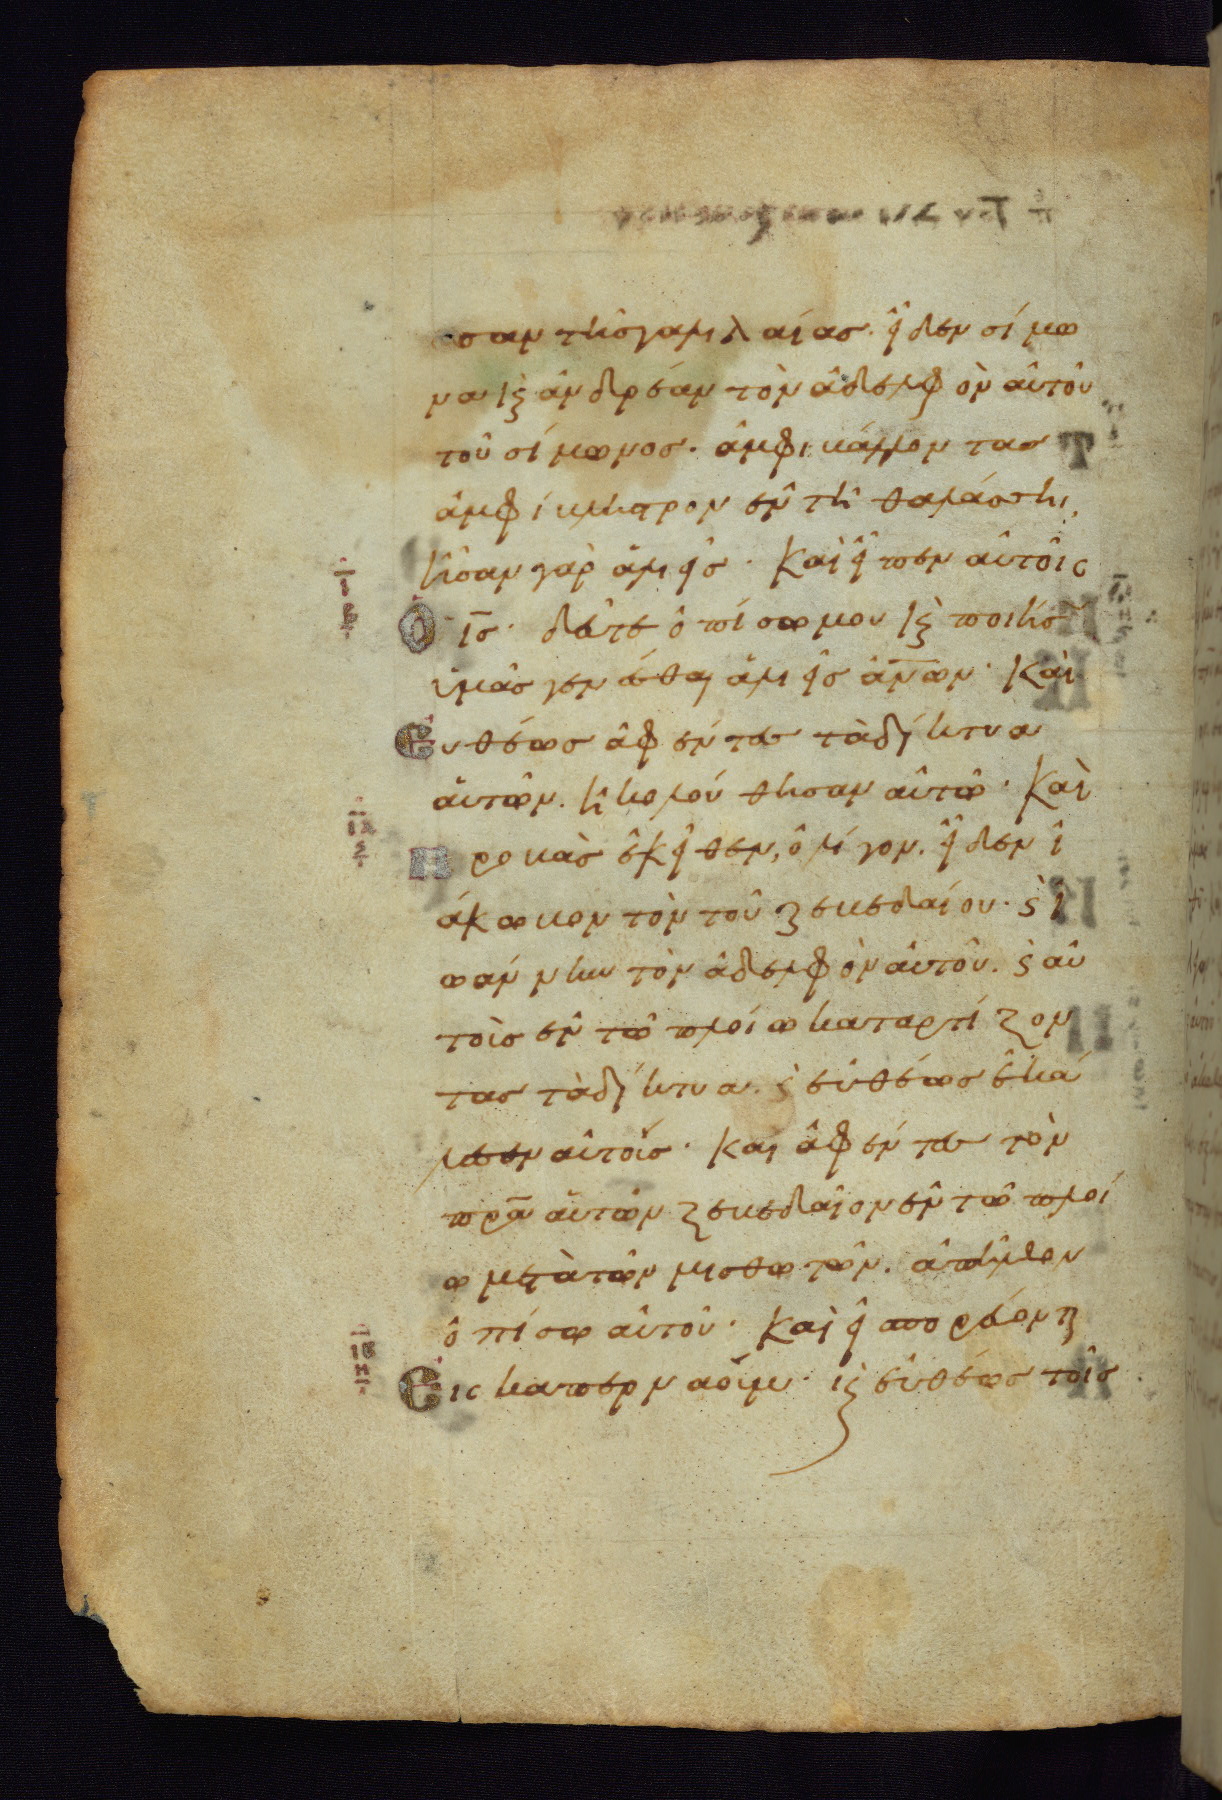 σσαν τῆς γαλιλαίας. εἶδεν σίμω
να κ̀ ἀνδρέαν τὸν ἀδελφὸν αὐτοῦ
τοῦ σίμωνος. ἀμφιβάλλοντας
ἀμφίβληστρον ἐν τῆ θαλάσση,
ἦσαν γὰρ ἁλιεῖς. Καὶ εἶπεν αὐτοῖς
Ὁ ι̅ς̅. δεῦτε ὀπίσω μου κ̀ ποιήσω
ὑμᾶς γενέσθαι ἁλιεῖς ἀν̅ων. Καὶ
Εὐθέως ἀφέντες τὰ δίκτυα
αὐτῶν. ἠκολούθησαν αὐτῶ. Καὶ
Προβὰς ἐκεῖθεν, ὀλίγον. εἶδεν ἰ
άκωβον τὸν τοῦ ζεβεδαίου. κ̀ ἰ
ωάννην τὸν ἀδελφὸν αὐτοῦ. κ̀ αὐ
τοὺς ἐν τῶ πλοίω καταρτίζον
τας τὰ δίκτυα. κ̀ εὐθέως ἐκά
λεσεν αὐτούς. Και ἀφέντες τὸν
πρ̅α αὐτῶν ζεβεδαῖον ἐν τῶ πλοί
ω μετὰ τῶν μισθωτῶν. ἀπῆλθον
ὀπίσω αὐτοῦ. Καὶ εἰσπορεύονται
Εἰς καπερναούμ. κ̀ εὐθέως τοῖς